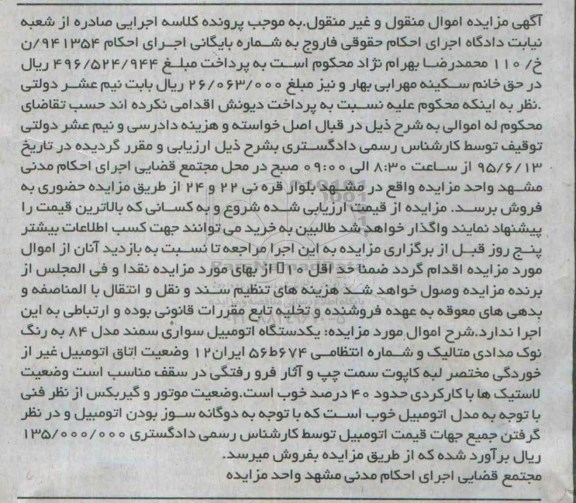 آگهی مزایده اموال منقول و غیر منقول.به موجب پرونده کلاسه اجرایی صادره از شعبه
نیابت دادگاه اجرای احکام حقوقی فاروج به شماره بایگانی اجرای احکام ۹۴۱۳۵۴/ن
خ/ ۱۱۰ محمدرضا بهرام نژاد محکوم است به پرداخت مبلغ ۴۹۶/۵۲۴/۹۴۴ ریال
در حق خانم سکینه مهرابی بهار و نیز مبلغ ۲۶/۰۶۳/۰۰۰ ریال بابت نیم عشر دولتی
.نظر به اینکه محکوم علیه نسبت به پرداخت دیونش اقدامی نکرده اند حسب تقاضای
محکوم له اموالی به شرح ذیل در قبال اصل خواسته و هزینه دادرسی و نیم عشر دولتی
توقیف توسط کارشناس رسمی دادگستری بشرح ذیل ارزیابی و مقرر گردیده در تاریخ
۹۵/۶/۱۳ از ساعت ۸:۳۰ الی ۰۹:۰۰ صبح در محل مجتمع قضایی اجرای احکام مدنی
مشهد واحد مزایده واقع در مشهد بلوار قره نی ۲۲ و ۲۴ از طریق مزایده حضوری به
فروش برسد. مزایده از قیمت ارزیابی شده شروع و به کسانی که بالاترین قیمت را
پیشنهاد نمایند واگذار خواهد شد طالبین به خرید می توانند جهت کسب اطلاعات بیشتر
پنج روز قبل از برگزاری مزایده به این اجرا مراجعه تا نسبت به بازدید آنان از اموال
مورد مزایده اقدام گردد ضمنا حد اقل ۱۰٪ از بهای مورد مزایده نقدا و فی المجلس از
برنده مزایده وصول خواهد شد هزینه های تنظیم سند و نقل و انتقال با المناصفه و
بدهی های معوقه به عهده فروشنده و تخلیه تابع مقررات قانونی بوده و ارتباطی به این
اجرا ندارد.شرح اموال مورد مزایده: یکدستگاه اتومبیل سواری سمند مدل ۸۴ به رنگ
نوک مدادی متالیک و شماره انتظامی ۶۷۴ط۵۶ ایران۱۲ وضعیت اتاق اتومبیل غیر از
خوردگی مختصر لبه کاپوت سمت چپ و آثار فرو رفتگی در سقف مناسب است وضعیت
لاستیک ها با کارکردی حدود ۴۰ درصد خوب است.وضعیت موتور و گیربکس از نظر فنی
با توجه به مدل اتومبیل خوب است که با توجه به دوگانه سوز بودن اتومبیل و در نظر
گرفتن جمیع جهات قیمت اتومبیل توسط کارشناس رسمی دادگستری ۱۳۵/۰۰۰/۰۰۰
ریال برآورد شده که از طریق مزایده بفروش میرسد.
مجتمع قضایی اجرای احکام مدنی مشهد واحد مزایده